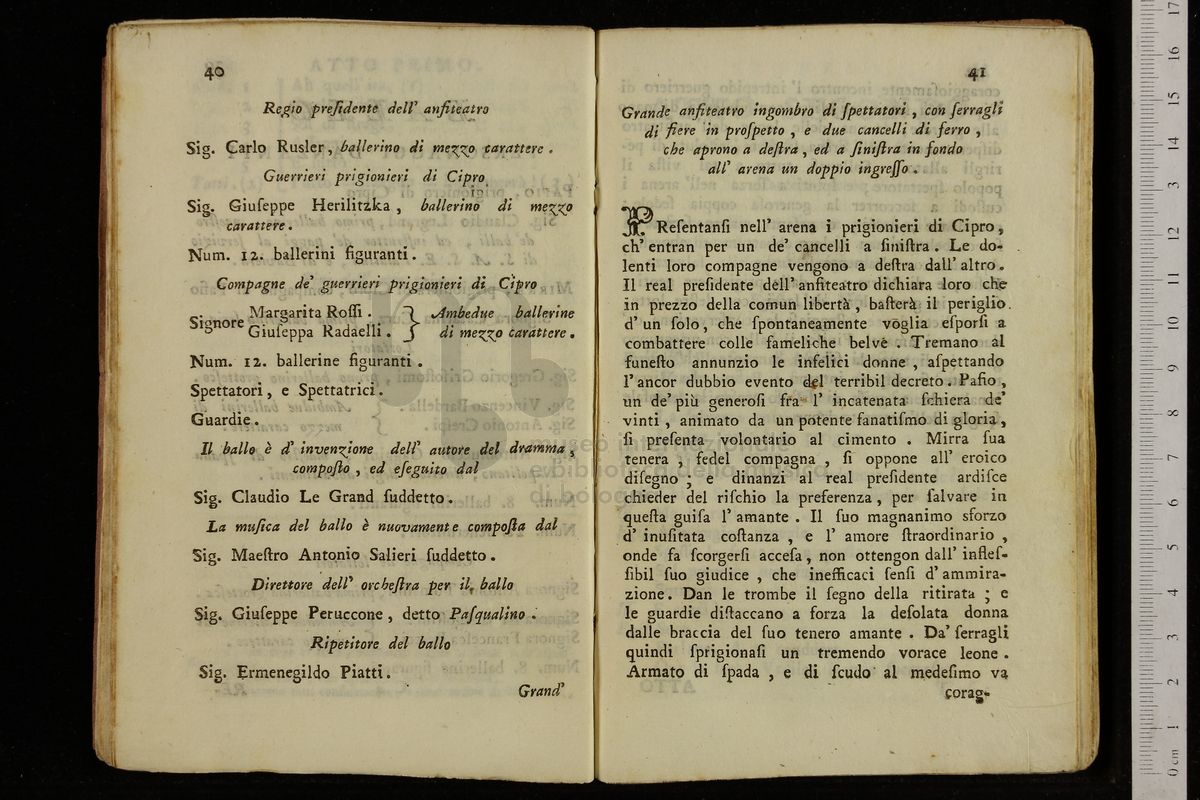 40
Regio preſidente dell' anfiteatro
Sig. Carlo Rusler, ballerino di mezzo carattere.
Guerrieri prigionieri di Cipro
Sig. Giuſeppe Herilitzka, ballerino di mezzo
carattere.
Num. 12. ballerini figuranti.
Compagne de' guerrieri prigionieri di Cipro
Signore Margarita Roſſi. } Ambedue ballerine
Giuſeppa Radaelli. } di mezzo carattere.
Num. 12. ballerine figuranti.
Spettatori, e Spettatrici.
Guardie.
Il ballo è d' invenzione dell' autore del dramma,
compoſto, ed eſeguito dal
Sig. Claudio Le Grand ſuddetto.
La muſica del ballo è nuovamente compoſta dal
Sig. Maeſtro Antonio Salieri ſuddetto.
Direttore dell' orcheſtra per il ballo
Sig. Giuſeppe Peruccone, detto Paſqualino.
Ripetitore del ballo
Sig. Ermenegildo Piatti.
Grand'
41
Grande anfiteatro ingombro di ſpettatori, con ſerragli
di fiere in proſpetto, e due cancelli di ferro,
che aprono a deſtra, ed a ſiniſtra in fondo
all' arena un doppio ingreſſo.
PReſentanſi nell' arena i prigionieri di Cipro,
ch' entran per un de' cancelli a ſiniſtra. Le do-
lenti loro compagne vengono a deſtra dall' altro.
Il real preſidente dell' anfiteatro dichiara loro che
in prezzo della comun libertà, baſterà il periglio
d' un ſolo, che ſpontaneamente voglia eſporſi a
combattere colle fameliche belve. Tremano al
funeſto annunzio le infelici donne, aſpettando
l' ancor dubbio evento del terribil decreto. Pafio,
un de' più generoſi fra l' incatenata ſchiera de'
vinti, animato da un potente fanatiſmo di gloria,
ſi preſenta volontario al cimento. Mirra ſua
tenera, fedel compagna, ſi oppone all' eroico
diſegno; e dinanzi al real preſidente ardiſce
chieder del riſchio la preferenza, per ſalvare in
queſta guiſa l' amante. Il ſuo magnanimo sforzo
d' inuſitata coſtanza, e l' amore ſtraordinario,
onde fa ſcorgerſi acceſa, non ottengon dall' infleſ-
ſibil ſuo giudice, che inefficaci ſenſi d' ammira-
zione. Dan le trombe il ſegno della ritirata; e
le guardie diſtaccano a forza la deſolata donna
dalle braccia del ſuo tenero amante. Da' ſerragli
quindi ſprigionaſi un tremendo vorace leone.
Armato di ſpada, e di ſcudo al medeſimo va
corag-
museo internazionale
e biblioteca della musica
di bologna
0 cm 1 2 3 4 5 6 7 8 9 10 11 12 13 14 15 16 17